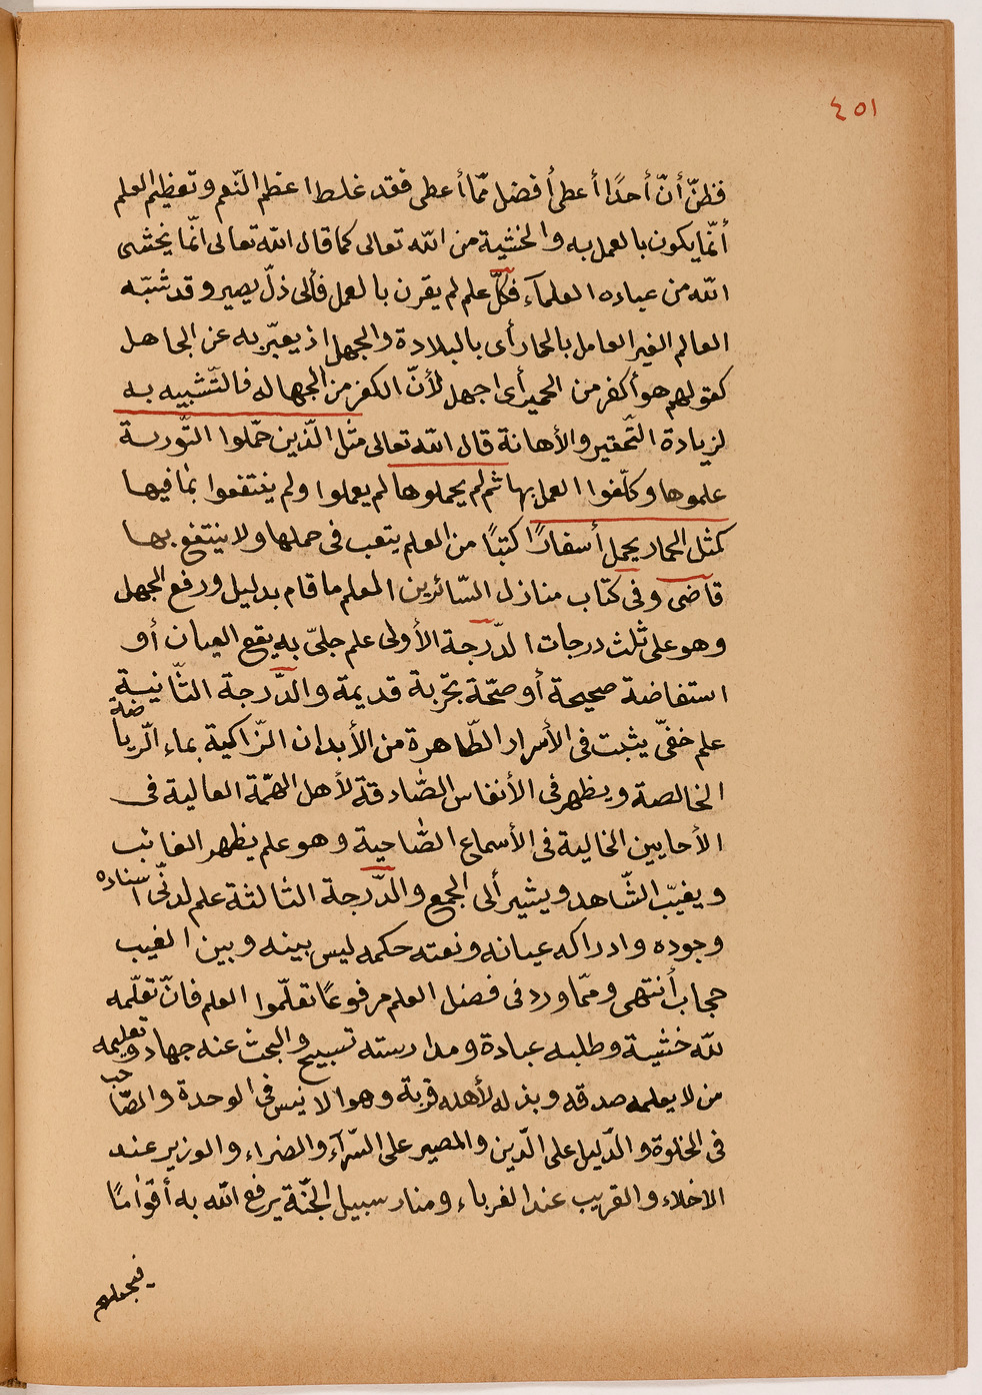 ٤٥١
فظنّ أنّ أحدًا أعطى أفضل ممّا أعطى فقد غلط اعظم النّعم وتعظيم العلم
أنّما يكون بالعمل به والخشية من الله تعالى كما قال الله تعالى انّما يخشى
الله من عباده العلمآء فكلّ علم لم يقرن بالعمل فألى ذلّ يصير وقد شبّه
العالم الغير العامل بالحمار أى بالبلادة والجهل اذ يعبّر به عن الجاهل
كقولهم هو أكفر من الحمير أى اجهل لأنّ الكفر من الجهاله فالتّشبيه به
لزيادة التّحقير والأهانة قال الله تعالى مثل الّذين حمّلوا التّورية
علموها وكلّفوا العمل بها ثم لم يحملوها لم يعملوا ولم ينتفعوا بما فيها
كمثل الحمار يحمل أسفارًا كتبًا من العلم يتعب فى حملها ولا ينتفع بها
قاضى وفى كتاب منازل السّائرين العلم ما قام بدليل ورفع الجهل
وهو على ثلث درجات الدّرجة الأولى علم جلىّ به يقع العيان أو
استفاضة صحيحة أو صحّة تجربة قديمة والدّرجة الثّانية
علم خفىّ يثبت فى الأسرار الطّاهرة من الأبدان الزّاكية بماء الرّياضة
الخالصة ويظهر فى الأنفاس الصّادقة لأهل الهمّة العالية فى
الأحايين الخالية فى الأسماع الصّاحية وهو علم يظهر الغائب
ويغيّب الشّاهد ويشير ألى الجمع والدّرجة الثالثة علم لدنّى اسناده
وجوده وادراكه عيانه ونعته حكمه ليس بينه وبين الغيب
حجاب أنتهى وممّا ورد فى فضل العلم مرفوعًا تعلّموا العلم فانّ تعلّمه
لله خشية وطلبه عبادة ومدارسته تسبيح والبحث عنه جهاد وتعليمه
من لا يعلمه صدقه وبذله لأهله قربة وهو الانيس فى الوحدة والصّاحب
فى الخلوة والدّليل على الدّين والمصير على السّرآء والضراء والوزير عند
الاخلاء والقريب عند الغرباء ومنار سبيل الجنّة يرفع الله به أقوامًا
فيجعلهم